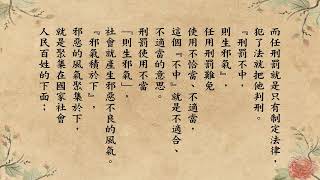 而任刑罰就是只有制定法律，
犯了法就把他判刑。
『刑罰不中，
則生邪氣』，
任用刑罰難免
使用不恰當、不適當，
這個『不中』就是不適合、
不適當的意思。
刑罰使用不當
「則生邪氣」，
社會就產生邪惡不良的風氣。
『邪氣積於下』，
邪惡的風氣聚集於下，
就是聚集在國家社會
人民百姓的下面；